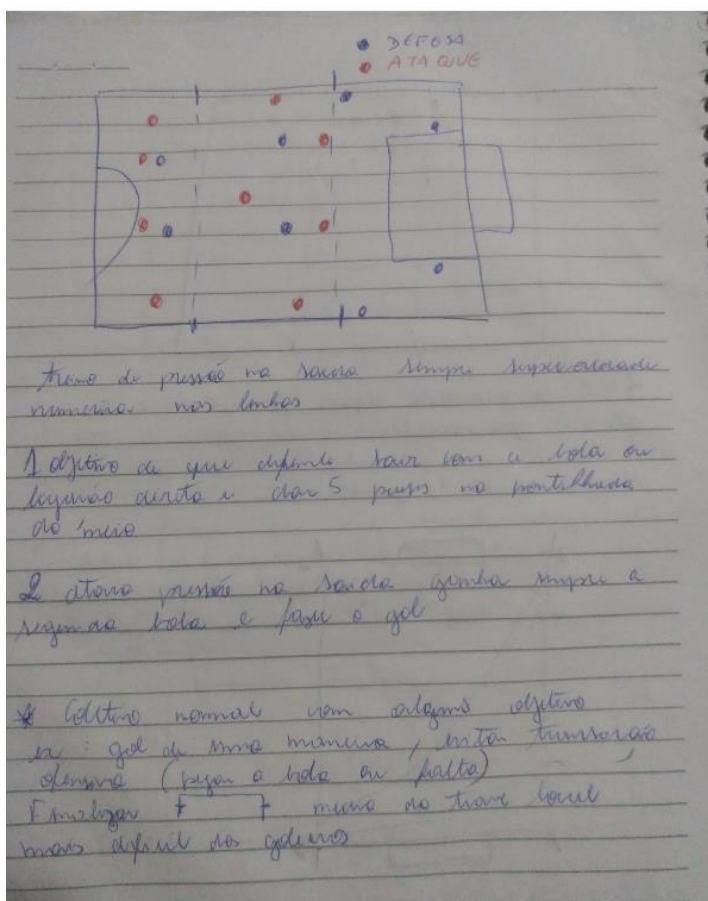 DEFESA
ATAQUE
treino de pressão na saída sempre superioridade
numerica nas linhas
1 objetivo de que defende sair com a bola ou
ligação direta e dar 5 passes no pontilhado
do meio
2 ataque pressão na saída ganha sempre a
segunda bola e fazer o gol
* Coletivo normal com algums objetivo
ex: gol de uma maneira, evitar transição
ofensiva (pegar a bola ou falta)
Finalizar meio da trave local
mais dificil dos goleiros